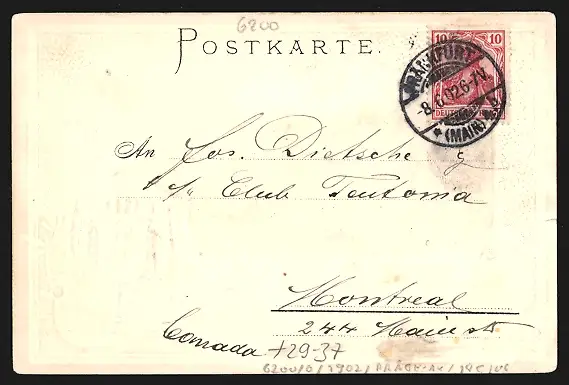 6200
POSTKARTE.
10 10
DEUTSCHES
FRANKFURT
-8.6.02.6-7N.
* (MAIN)
An Jos. Dietsche
c/o Club Teutonia
Montreal
244 Main st
Canada
+29-37
6200/0/1902/